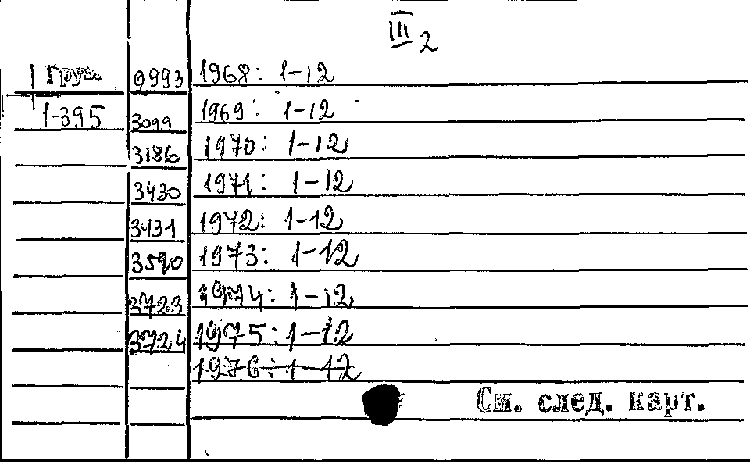 III 2
1 груз. 0993 1968: 1-12
1-395 3099 1969: 1-12
3186 1970: 1-12
3430 1971: 1-12
3431 1972: 1-12
3590 1973: 1-12
3723 1974: 1-12
3724 1975: 1-12
1976: 1-12
См. след. карт.